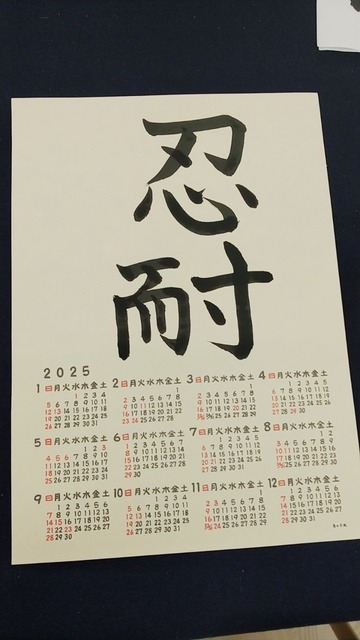 忍耐
2025
1 日月火水木金土
1 2 3 4
5 6 7 8 9 10 11
12 13 14 15 16 17 18
19 20 21 22 23 24 25
26 27 28 29 30 31
2 日月火水木金土
1
2 3 4 5 6 7 8
9 10 11 12 13 14 15
16 17 18 19 20 21 22
23 24 25 26 27 28
3 日月火水木金土
1
2 3 4 5 6 7 8
9 10 11 12 13 14 15
16 17 18 19 20 21 22
23/30 24/31 25 26 27 28 29
4 日月火水木金土
1 2 3 4 5
6 7 8 9 10 11 12
13 14 15 16 17 18 19
20 21 22 23 24 25 26
27 28 29 30
5 日月火水木金土
1 2 3
4 5 6 7 8 9 10
11 12 13 14 15 16 17
18 19 20 21 22 23 24
25 26 27 28 29 30 31
6 日月火水木金土
1 2 3 4 5 6 7
8 9 10 11 12 13 14
15 16 17 18 19 20 21
22 23 24 25 26 27 28
29 30
7 日月火水木金土
1 2 3 4 5
6 7 8 9 10 11 12
13 14 15 16 17 18 19
20 21 22 23 24 25 26
27 28 29 30 31
8 日月火水木金土
1 2
3 4 5 6 7 8 9
10 11 12 13 14 15 16
17 18 19 20 21 22 23
24/31 25 26 27 28 29 30
9 日月火水木金土
1 2 3 4 5 6
7 8 9 10 11 12 13
14 15 16 17 18 19 20
21 22 23 24 25 26 27
28 29 30
10 日月火水木金土
1 2 3 4
5 6 7 8 9 10 11
12 13 14 15 16 17 18
19 20 21 22 23 24 25
26 27 28 29 30 31
11 日月火水木金土
1
2 3 4 5 6 7 8
9 10 11 12 13 14 15
16 17 18 19 20 21 22
23/30 24 25 26 27 28 29
12 日月火水木金土
1 2 3 4 5 6
7 8 9 10 11 12 13
14 15 16 17 18 19 20
21 22 23 24 25 26 27
28 29 30 31